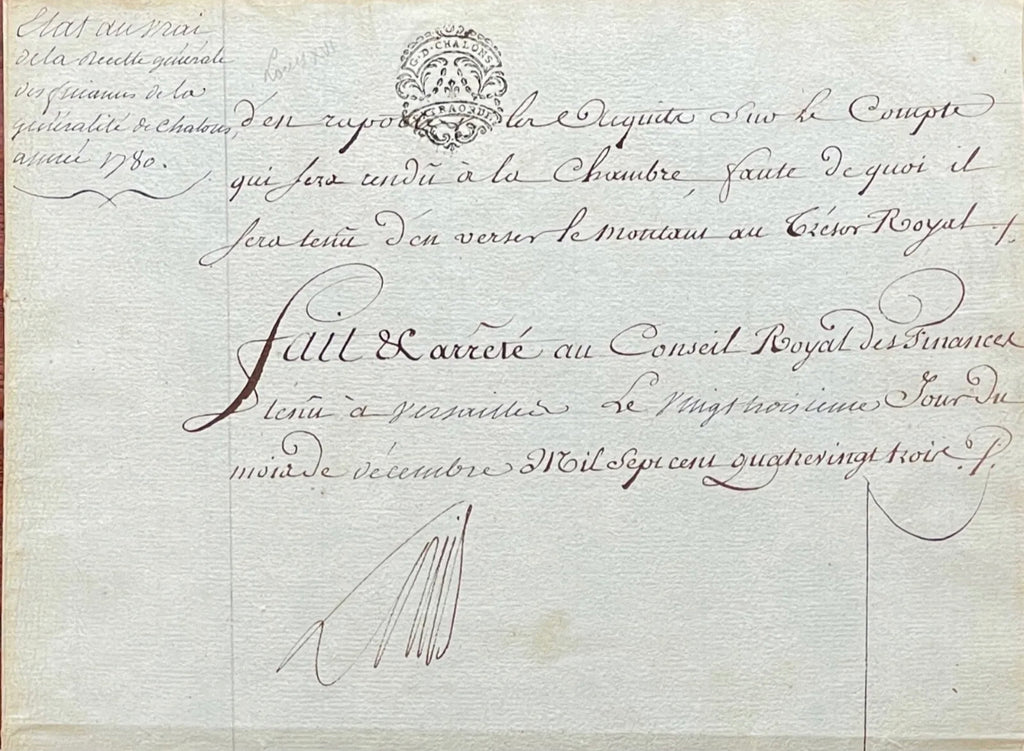 Etat au vrai
de la Recette générale
des finances de la
généralité de Chalons,
année 1780.
Louis XVI
G·D·CHALONS
EXTRAORDRE
d'en rapporter les Acquits sur le Compte
qui sera rendû à la Chambre, faute de quoi il
sera tenû d'en verser le montant au Trésor Royal
Fait & arrêté au Conseil Royal des Finances
tenû à Versailles Le vingt troisieme Jour du
mois de décembre Mil Sept cent quatrevingt trois
Louis